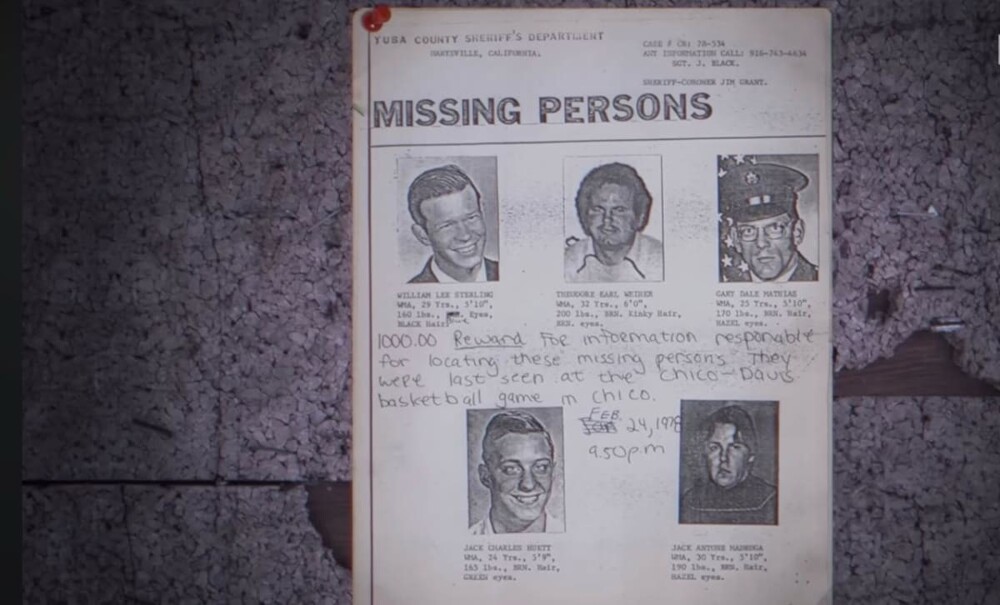 YUBA COUNTY SHERIFF'S DEPARTMENT
MARYSVILLE, CALIFORNIA.
CASE # CR: 78-534
ANY INFORMATION CALL: 916-743-4634
SGT. J. BLACK.
SHERIFF-CORONER JIM GRANT.
MISSING PERSONS
WILLIAM LEE STERLING
WMA, 29 Yrs., 5'10",
160 lbs., Eyes,
BLACK Hair
THEODORE EARL WEIHER
WMA, 32 Yrs., 6'0",
200 lbs., BRN. Kinky Hair,
BRN. eyes.
GARY DALE MATHIAS
WMA, 25 Yrs., 5'10",
170 lbs., BRN. Hair,
HAZEL eyes.
1000.00 Reward for information responsable
for locating these missing persons. They
were last seen at the Chico-Davis
basketball game in Chico.
FEB
24, 1978
9:50 p.m
JACK CHARLES HUETT
WMA, 24 Yrs., 5'9",
163 lbs., BRN. Hair,
GREEN eyes.
JACK ANTONE MADRUGA
WMA, 30 Yrs., 5'10",
190 lbs., BRN. Hair,
HAZEL eyes.